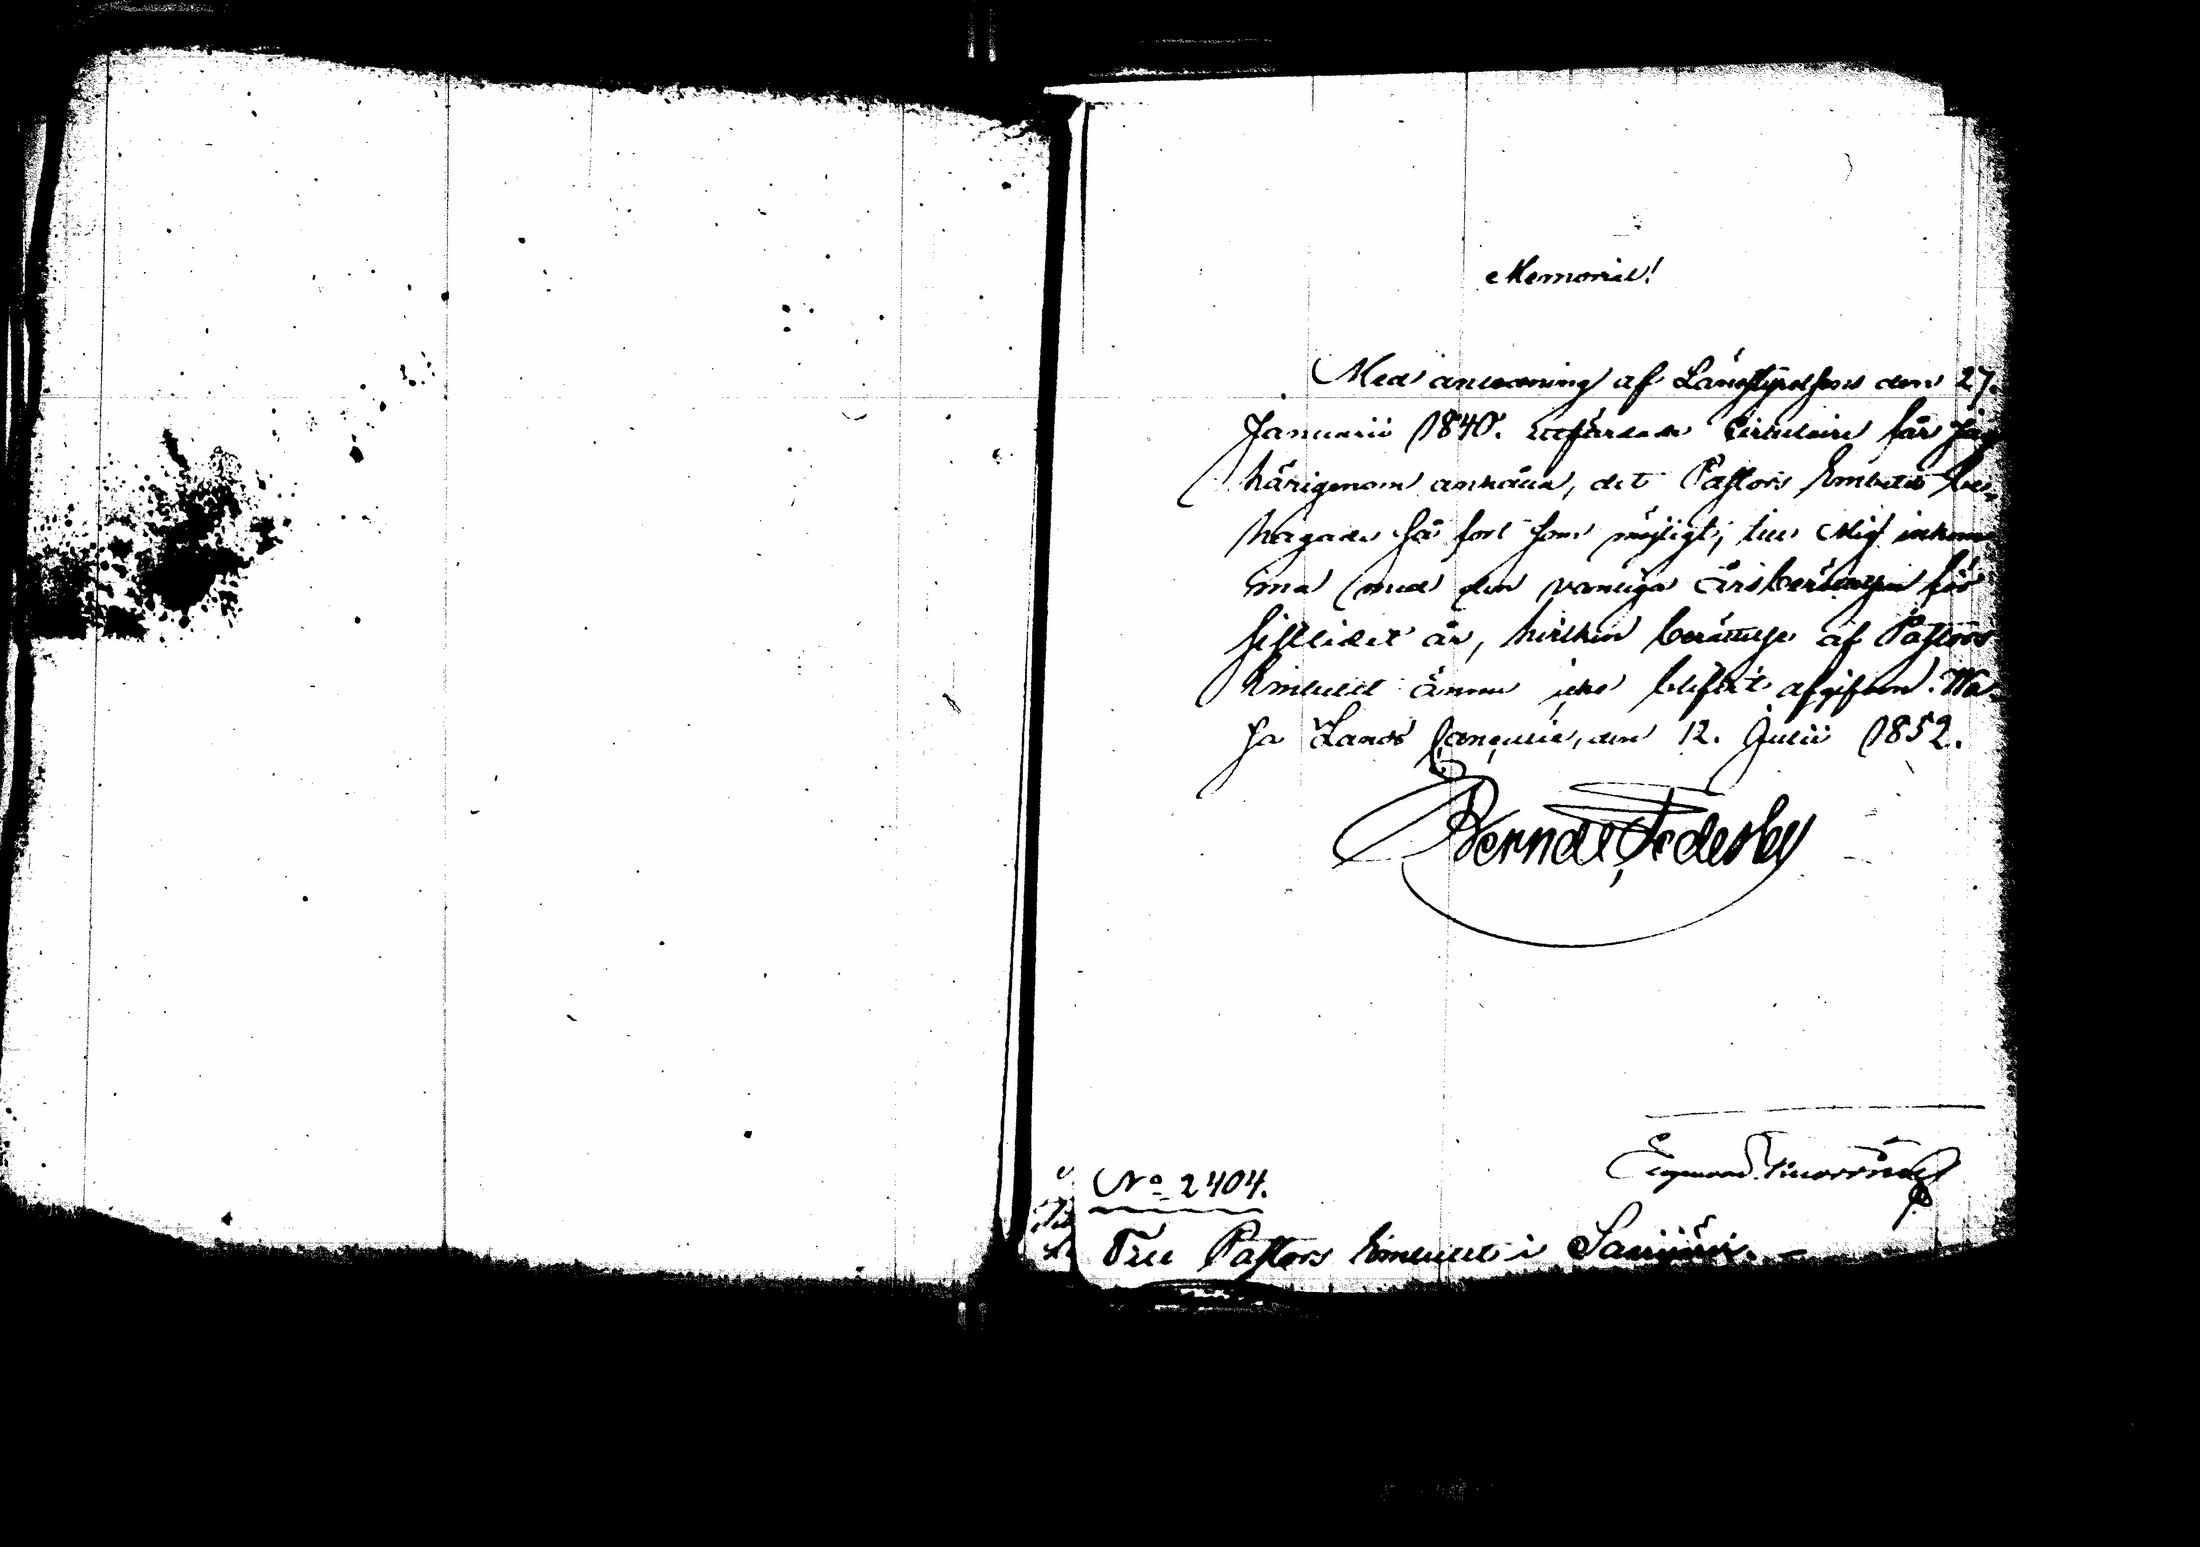 Memorial!
Med anledning af Länestyrelsens den 27.
Januarii 1840. utfärdade Circulaire får jag
härigenom anhålla, det Pastors Embetet be-
hagade så fort som möjligt, till Mig inkom
ma med den vanliga Årsberättelsen för
sistlidet år, hvilken berättelse af Pastors
Embetet ännu icke blifvit afgifven. Wa-
sa Lands Cancellie, den 12. Julii 1852.
Berndt Federley
No 2404.
Till Pastors Embetet i